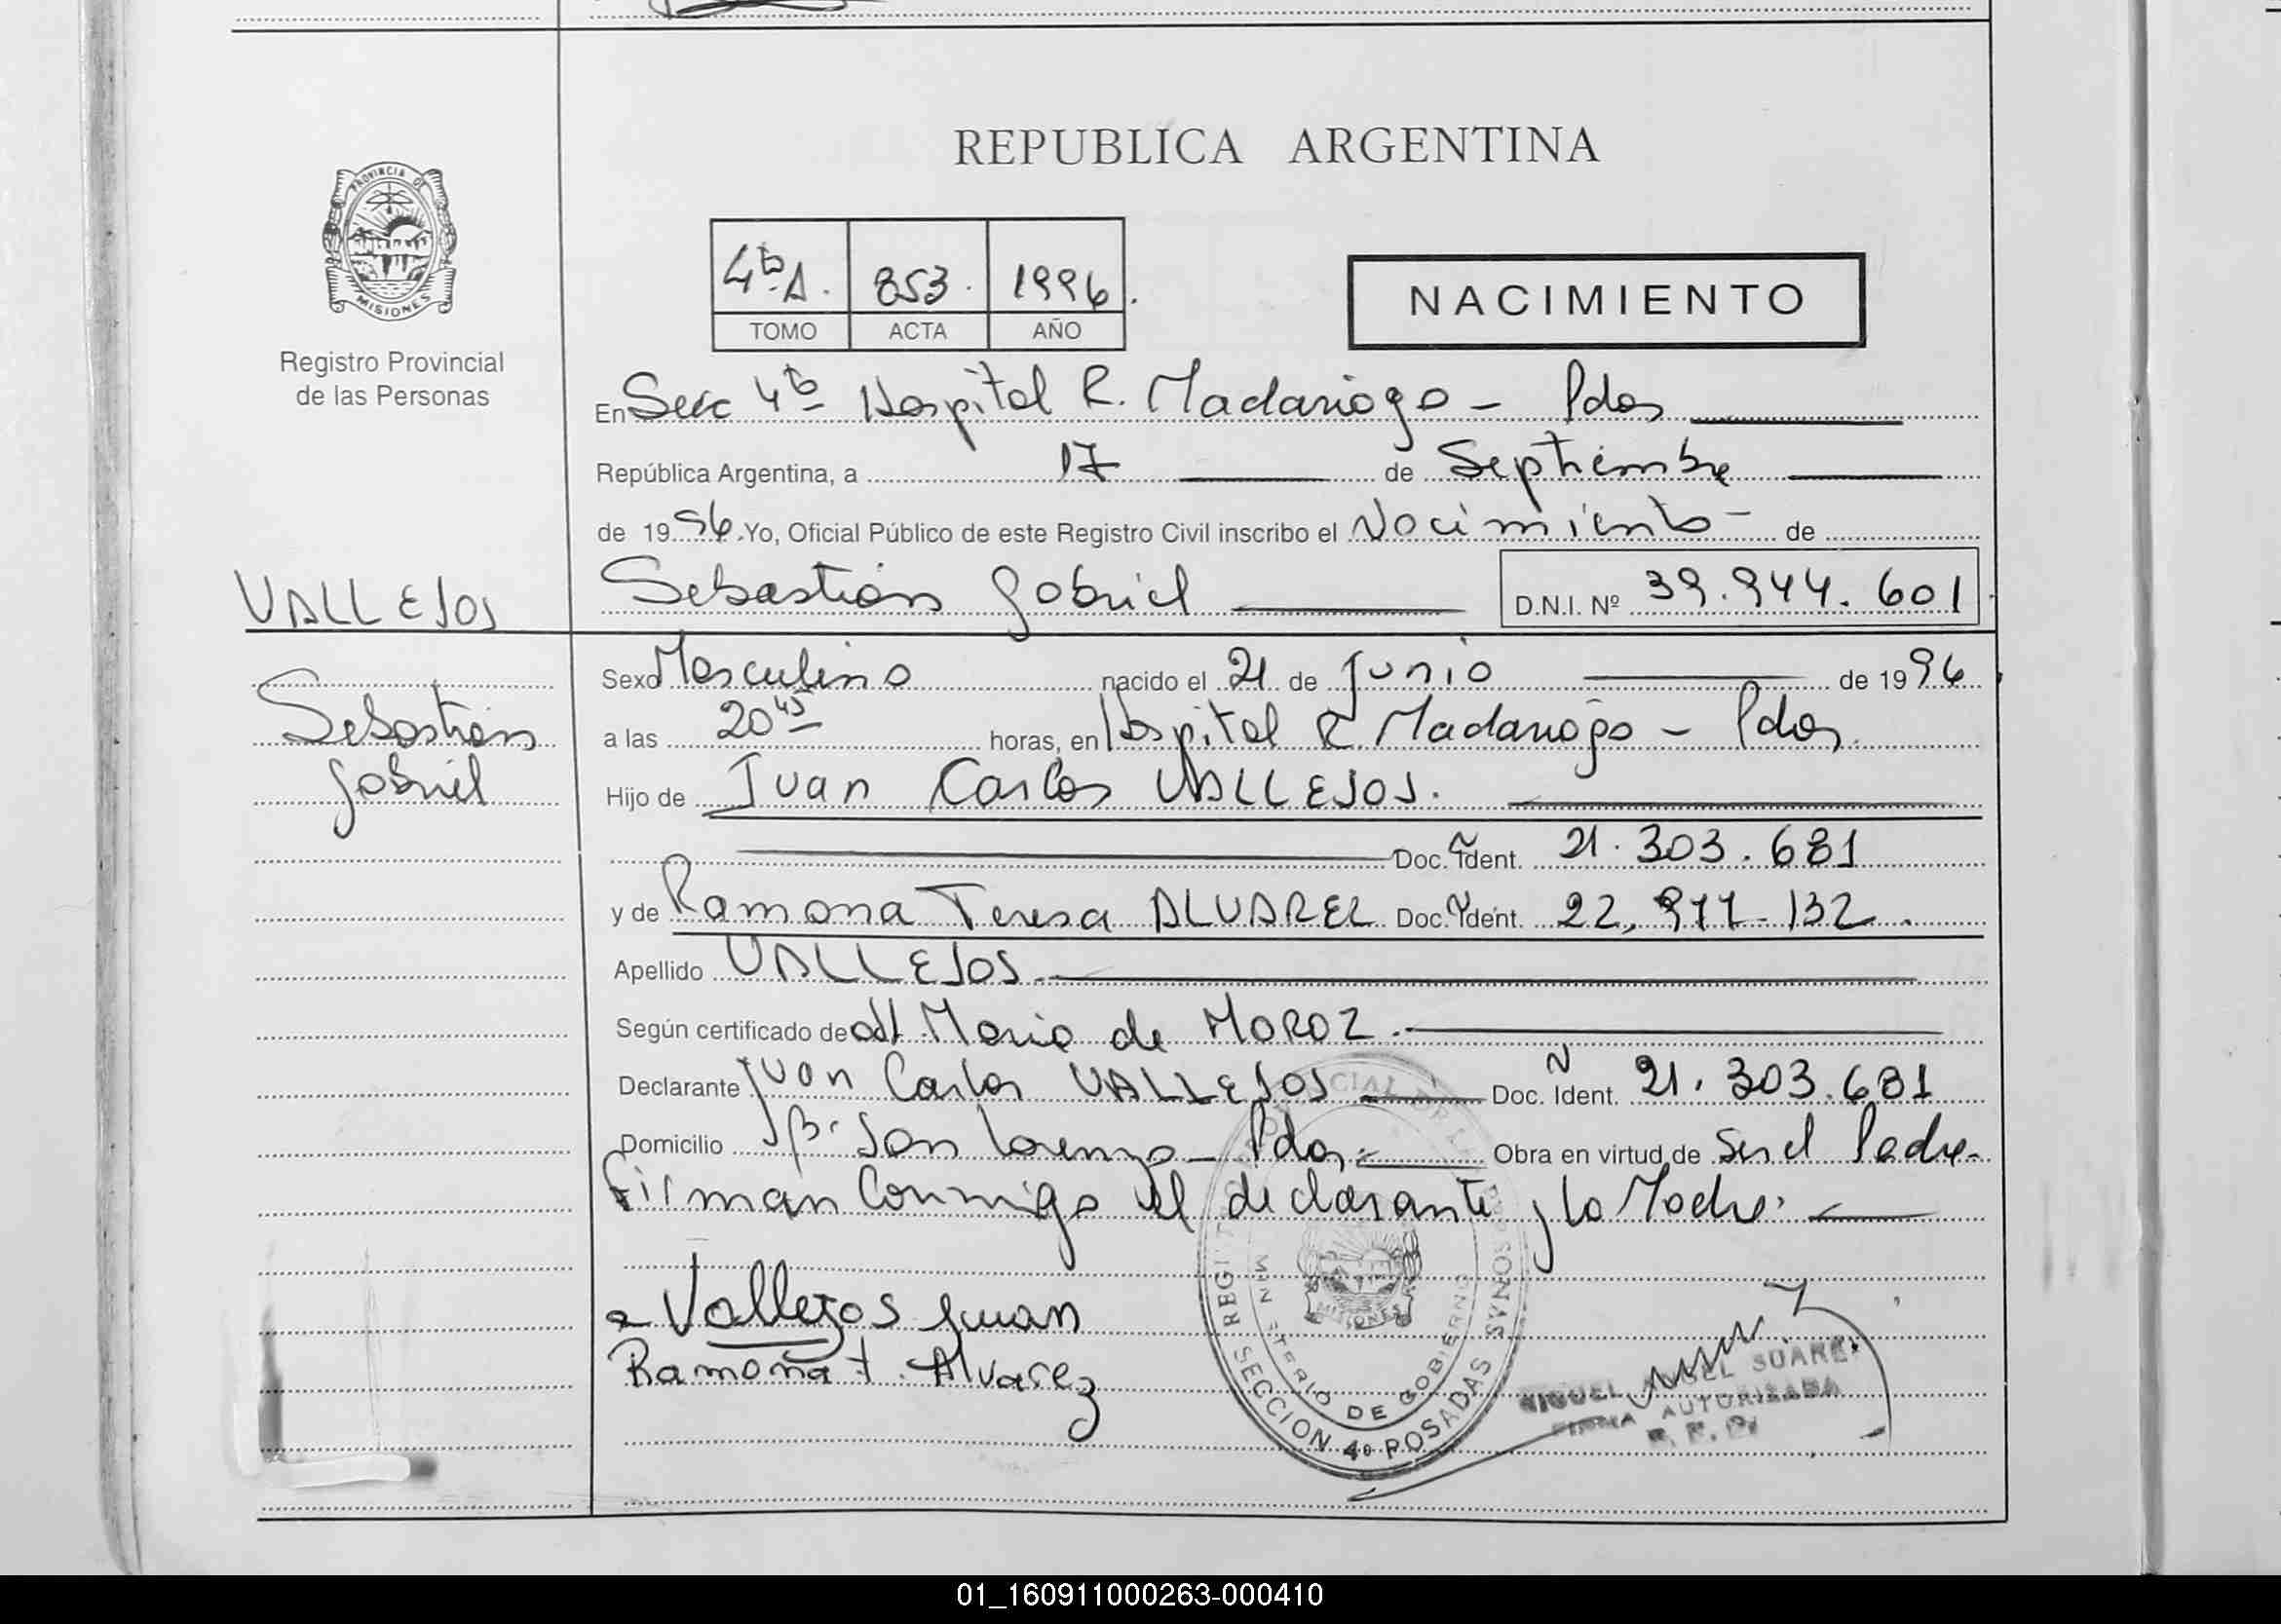 REPUBLICA ARGENTINA
PROVINCIA DE
MISIONES
Registro Provincial
de las Personas
4ta A. 853. 1996.
TOMO ACTA AÑO
NACIMIENTO
En Secc 4ta Hospital R. Madariaga - Pdas
República Argentina, a 17 de Septiembre
de 1996. Yo, Oficial Público de este Registro Civil inscribo el Nacimiento - de
VALLEJOS
Sebastián Gabriel D.N.I. Nº 39.944.601
Sebastián
Gabriel
Sexo Masculino nacido el 21 de Junio de 1996
a las 20 45 horas, en Hospital R. Madariaga - Pdas.
Hijo de Juan Carlos VALLEJOS.
Doc. Ident. 21.303.681
y de Ramona Teresa ALVAREZ Doc. Ident. 22,977-132.
Apellido VALLEJOS.
Según certificado de María de MOROZ.
Declarante Juan Carlos VALLEJOS Doc. Ident. 21.303.681
Domicilio Bº San Lorenzo - Pdas. Obra en virtud de Ser el Padre.
Firman Conmigo el declarante y la Madre.
Vallejos Juan
Ramona t. Alvarez
MINISTERIO DE GOBIERNO
MISIONES
SECCION 4º POSADAS
MIGUEL ANGEL SUAREZ
FIRMA AUTORIZADA
R. P. P.
01_160911000263-000410